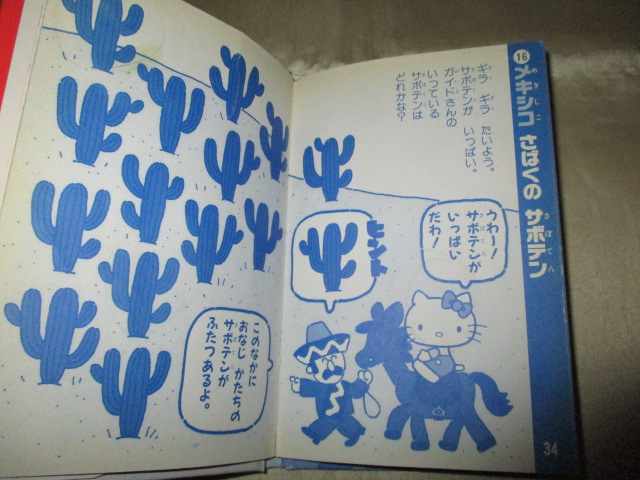 16 メキシコ さばくの サボテン
ギラ ギラ たいよう。
サボテンが いっぱい。
ガイドさんの
いっている
サボテンは
どれかな？
うわー！
サボテンが
いっぱい
だわ！
ヒント
このなかに
おなじ かたちの
サボテンが
ふたつ あるよ。
34